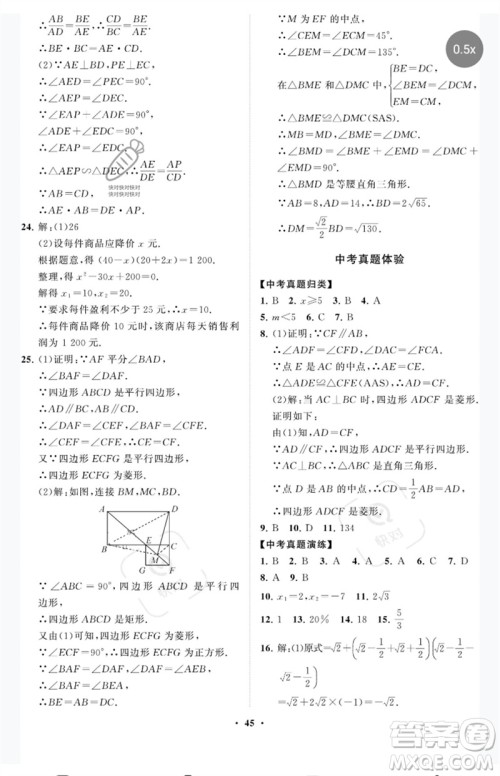 ∴AB/AD=CD/BE=BC/AE.
∴AE·AB=AD·BE.
(2)∵AE⊥BD,AP⊥PD,
∴∠AED=∠APD=90°.
∠EAP+∠AEP=90°,
∠ADE+∠AEP=90°.
∴∠EAP=∠ADE.
∴△AEP∽△DEA.∴AE/DE=AP/CD.
快对快对快对
快对快对快对
∵AB=CD,
24. 解:(1)26
(2)设每件商品应降价 x 元.
根据题意,得(40-x)(20+2x)=1 200.
整理,得 x²-30x+200=0.
解得 x₁=10,x₂=20.
∵要求每件盈利不少于 25 元,
∴每件降价 10 元时,该商店每天销售利
润为 1 200 元.
25. (1)证明:∵AF 平分∠BAD,
∴∠BAF=∠DAF.
∵四边形 ABCD 是平行四边形,
∴AD∥BC,AB∥CD.
∴∠DAF=∠CEF,∠BAF=∠CFE.
∴∠CEF=∠CFE.∴CE=CF.
又∵四边形 ECFG 是平行四边形,
∴四边形 ECFG 为菱形.
(2)解:如图,连接 BM,MC,BD.
A D
B E C
M
G F
∵∠ABC=90°,四边形 ABCD 是平行四
边形,
∴四边形 ABCD 是矩形.
又由(1)可知四边形 ECFG 为菱形,
∠ECF=90°,
∴四边形 ECFG 为正方形.
∵∠BAF=∠DAF,
∴BE=AB=DC.
∵M 为 EF 的中点,
∴∠CEM=∠ECM=45°.
∴∠BEM=∠DCM=135°.
在△BME 和△DMC 中,
BE=DC,
∠BEM=∠DCM,
EM=CM,
∴△BME≌△DMC(SAS).
∴MB=MD,∠DMC=∠BME.
∴∠BMD=∠BME+∠EMD=∠DMC+
∠EMD=90°.
∴△BMD 是等腰直角三角形.
∵AB=8,AD=14,∴BD=2√65.
∴DM=√2/2 BD=√130.
0.5x
中考真题体验
【中考真题归类】
1. B 2. x≥5 3. B 4. A
5. m<5 6. C 7. C
8. (1)证明:∵CF∥AB,
∴∠ADF=∠CFD,∠DAC=∠FCA.
∵点 E 是 AC 的中点,∴AE=CE.
∴△ADE≌△CFE(AAS).∴AD=CF.
(2)解:当 AC⊥BC 时,四边形 ADCF 是菱形.
证明如下:
由(1)知,AD=CF,
∵AD∥CF,∴四边形 ADCF 是平行四边形.
∵AC⊥BC,∴△ABC 是直角三角形.
∵点 D 是 AB 的中点,∴CD=1/2 AB=AD.
∴四边形 ADCF 是菱形.
9. B 10. 2 11. 134
【中考真题演练】
1. B 2. B 3. C 4. D 5. B
6. C 7. B 8. D 9. B
10. x₁=2,x₂=-7 11. 2√3
12. A 13. 20% 14. 18 15. 5/3
16. 解:(1)原式=√2+(√2+1/2)(√2-1/2)
=√2+2√2×(√2-1/2)
快对
- 45 -
MXQE.COM